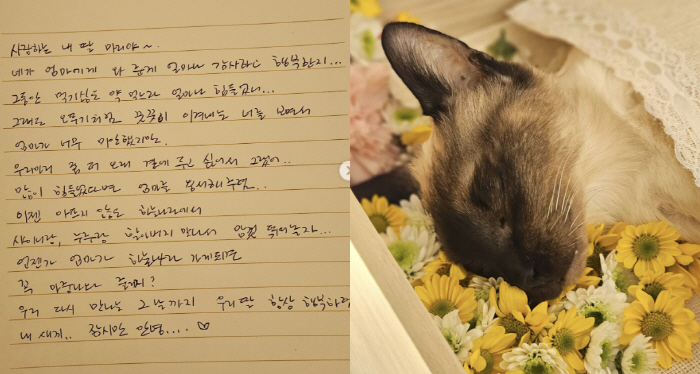 사랑하는 내 딸 마리야~.
네가 엄마에게 와 준게 얼마나 감사하고 행복한지...
그동안 먹기싫은 약 먹느라 얼마나 힘들었니...
그래도 오뚝기처럼 꿋꿋이 이겨내는 너를 보면서
엄마가 너무 미안했지만.
우리마리 좀 더 오래 곁에 두고 싶어서 그랬어..
많이 힘들었다면 엄마를 용서해주렴..
이젠 아프지 않은 하늘나라에서
샤이니랑, 누루랑 할아버지 만나서 맘껏 뛰어놀자...
언젠가 엄마가 하늘나라 가게되면
꼭 마중나와 줄꺼지?
우리 다시 만나는 그 날까지 우리딸 항상 행복하렴
내 새끼.. 잠시만 안녕.... ♡